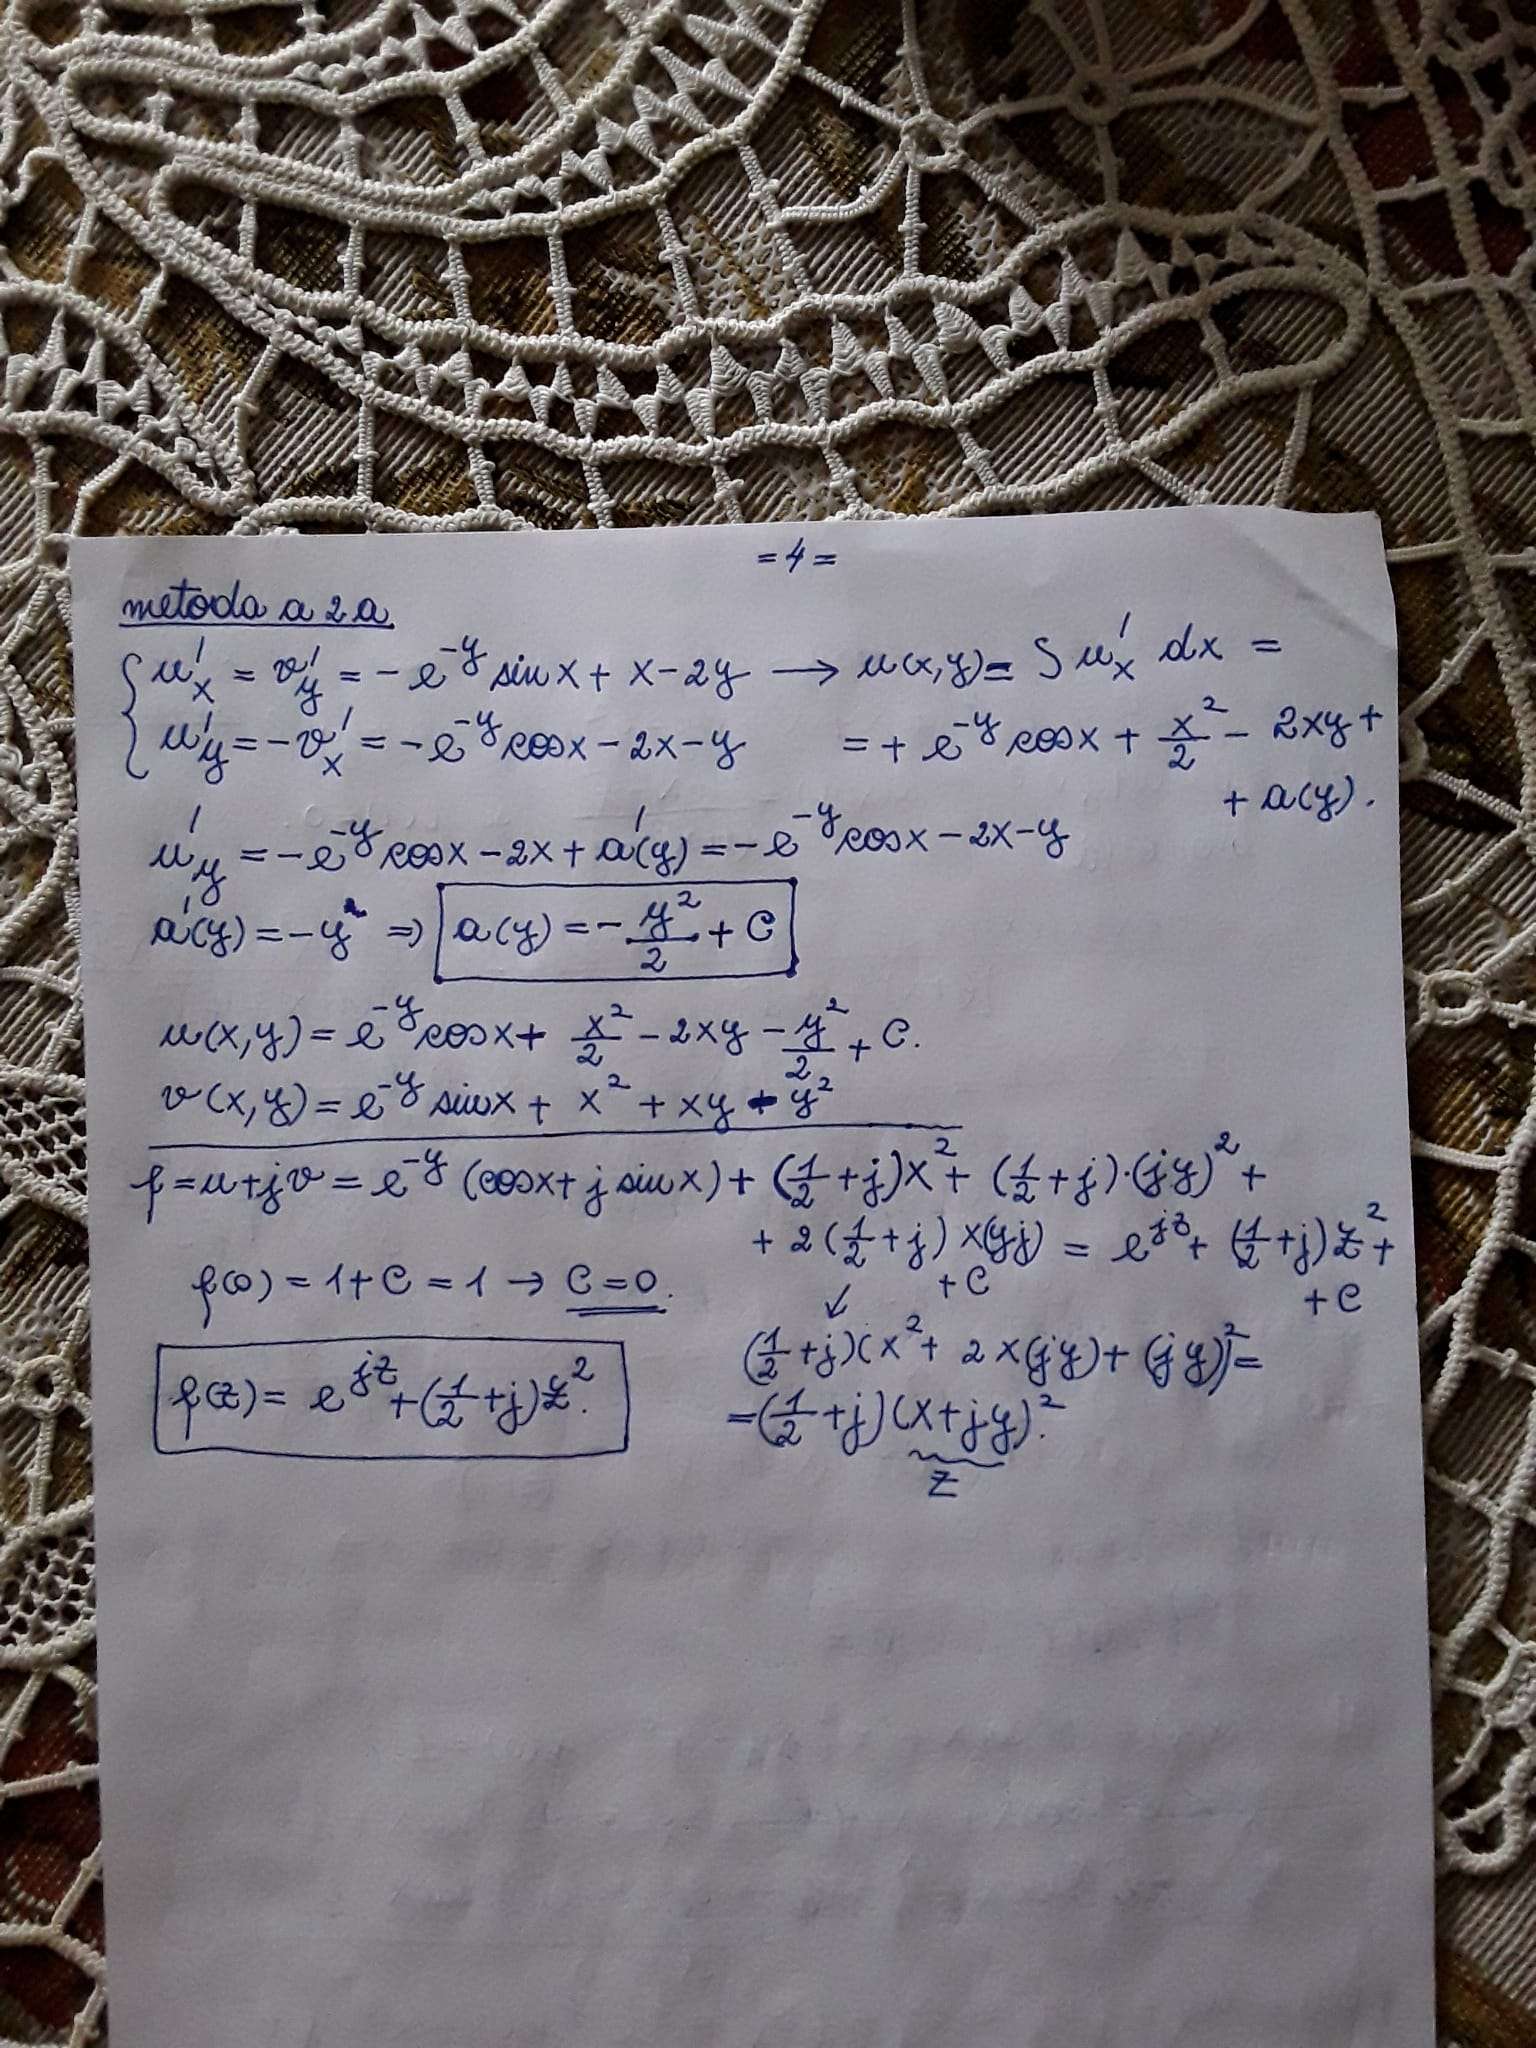 = 4 =
metoda a 2a
{ u'x = v'y = - e^-y sin x + x - 2y → u(x,y) = ∫ u'x dx =
u'y = - v'x = - e^-y cos x - 2x - y = + e^-y cos x + x²/2 - 2xy +
+ a(y).
u'y = - e^-y cos x - 2x + a'(y) = - e^-y cos x - 2x - y
a'(y) = - y ⇒ a(y) = - y²/2 + C
u(x,y) = e^-y cos x + x²/2 - 2xy - y²/2 + C.
v(x,y) = e^-y sin x + x² + xy - y²
f = u + jv = e^-y (cos x + j sin x) + (1/2 + j)x² + (1/2 + j)·(jy)² +
+ 2(1/2 + j) x(yj) = e^jz + (1/2 + j) z² +
+ C + C
f(0) = 1 + C = 1 → C = 0.
↙
(1/2 + j)(x² + 2x(jy) + (jy)²) =
f(z) = e^jz + (1/2 + j) z².
= (1/2 + j)(x + jy)².
z